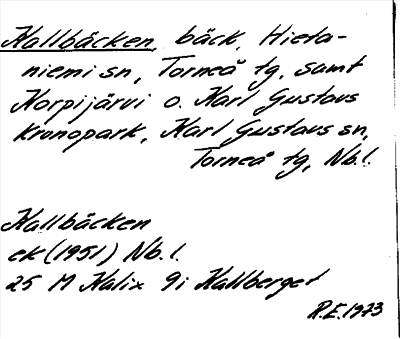 Kallbäcken, bäck, Hieta-
niemi sn, Torneå tg, samt
Korpijärvi o. Karl Gustavs
kronopark, Karl Gustavs sn,
Torneå tg, Nb.l.
Kallbäcken
ek (1951) Nb.l.
25 M Kalix 9i Kallberget
R.E.1973